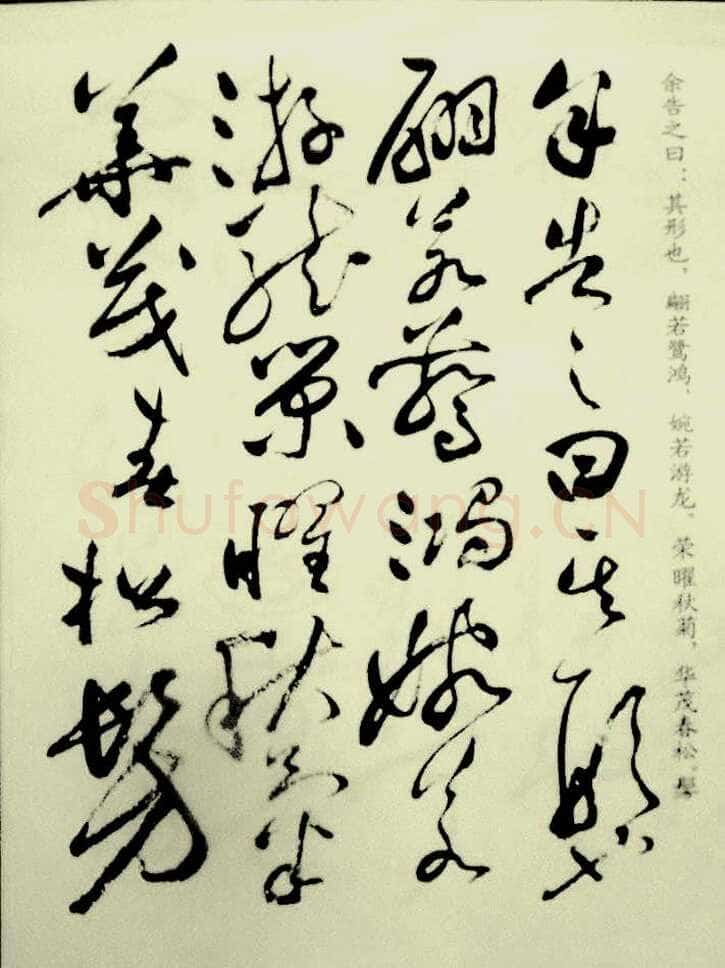 余告之曰：其形也，翩若鹭鸿，婉若游龙。荣曜秋菊，华茂春松。髣
余告之曰其形也
翩若驚鴻婉若
游龍榮曜秋菊
華茂春松髣
Shufawang.CN